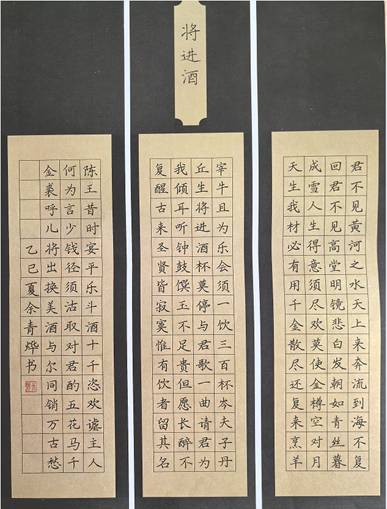 将进酒
君不见黄河之水天上来奔流到海不复
回君不见高堂明镜悲白发朝如青丝暮
成雪人生得意须尽欢莫使金樽空对月
天生我材必有用千金散尽还复来烹羊
宰牛且为乐会须一饮三百杯岑夫子丹
丘生将进酒杯莫停与君歌一曲请君为
我倾耳听钟鼓馔玉不足贵但愿长醉不
复醒古来圣贤皆寂寞惟有饮者留其名
陈王昔时宴平乐斗酒十千恣欢谑主人
何为言少钱径须沽取对君酌五花马千
金裘呼儿将出换美酒与尔同销万古愁
乙巳夏余青烨书